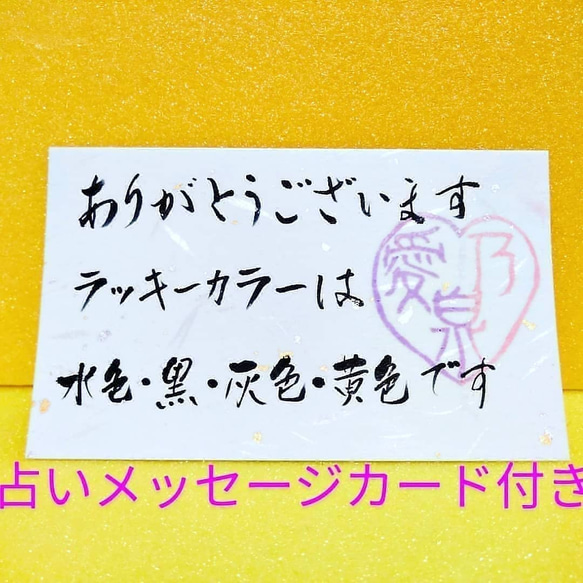 ありがとうございます
ラッキーカラーは
水色・黒・灰色・黄色です
愛乃泉
占いメッセージカード付き